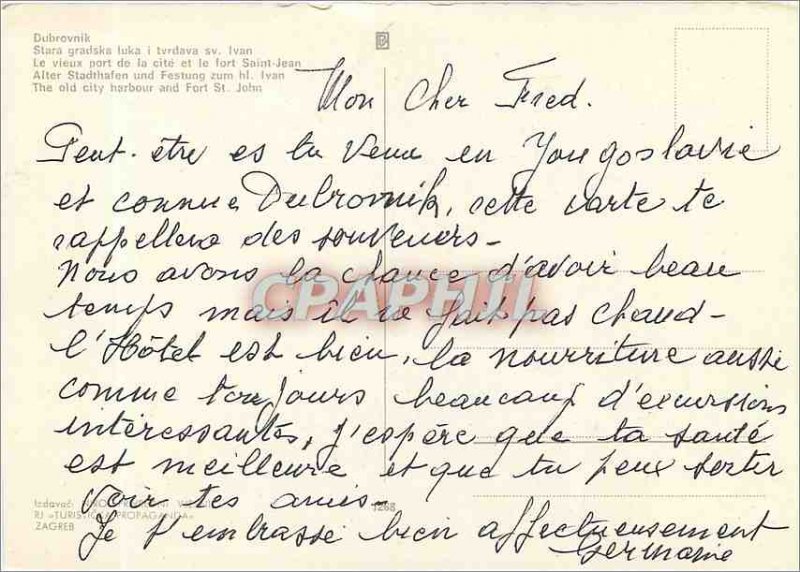 Dubrovnik
Stara gradska luka i tvrđava sv. Ivan
Le vieux port de la cité et le fort Saint-Jean
Alter Stadthafen und Festung zum hl. Ivan
The old city harbour and Fort St. John
Mon Cher Fred.
Peut-être es tu venu en Yougoslavie
et connue Dubrovnik, cette carte te
rappellera des souvenirs-
Nous avons la chance d'avoir beau
temps mais il ne fait pas chaud-
l'Hôtel est bien, la nourriture aussi
comme toujours beaucoup d'excursions
intéressantes, j'espère que ta santé
est meilleure et que tu peux sortir
voir tes amis-
Je t'embrasse bien affectueusement
Germaine
CPAPHIL
Izdavač:
RJ »TURISTIČKA PROPAGANDA«
ZAGREB
1268